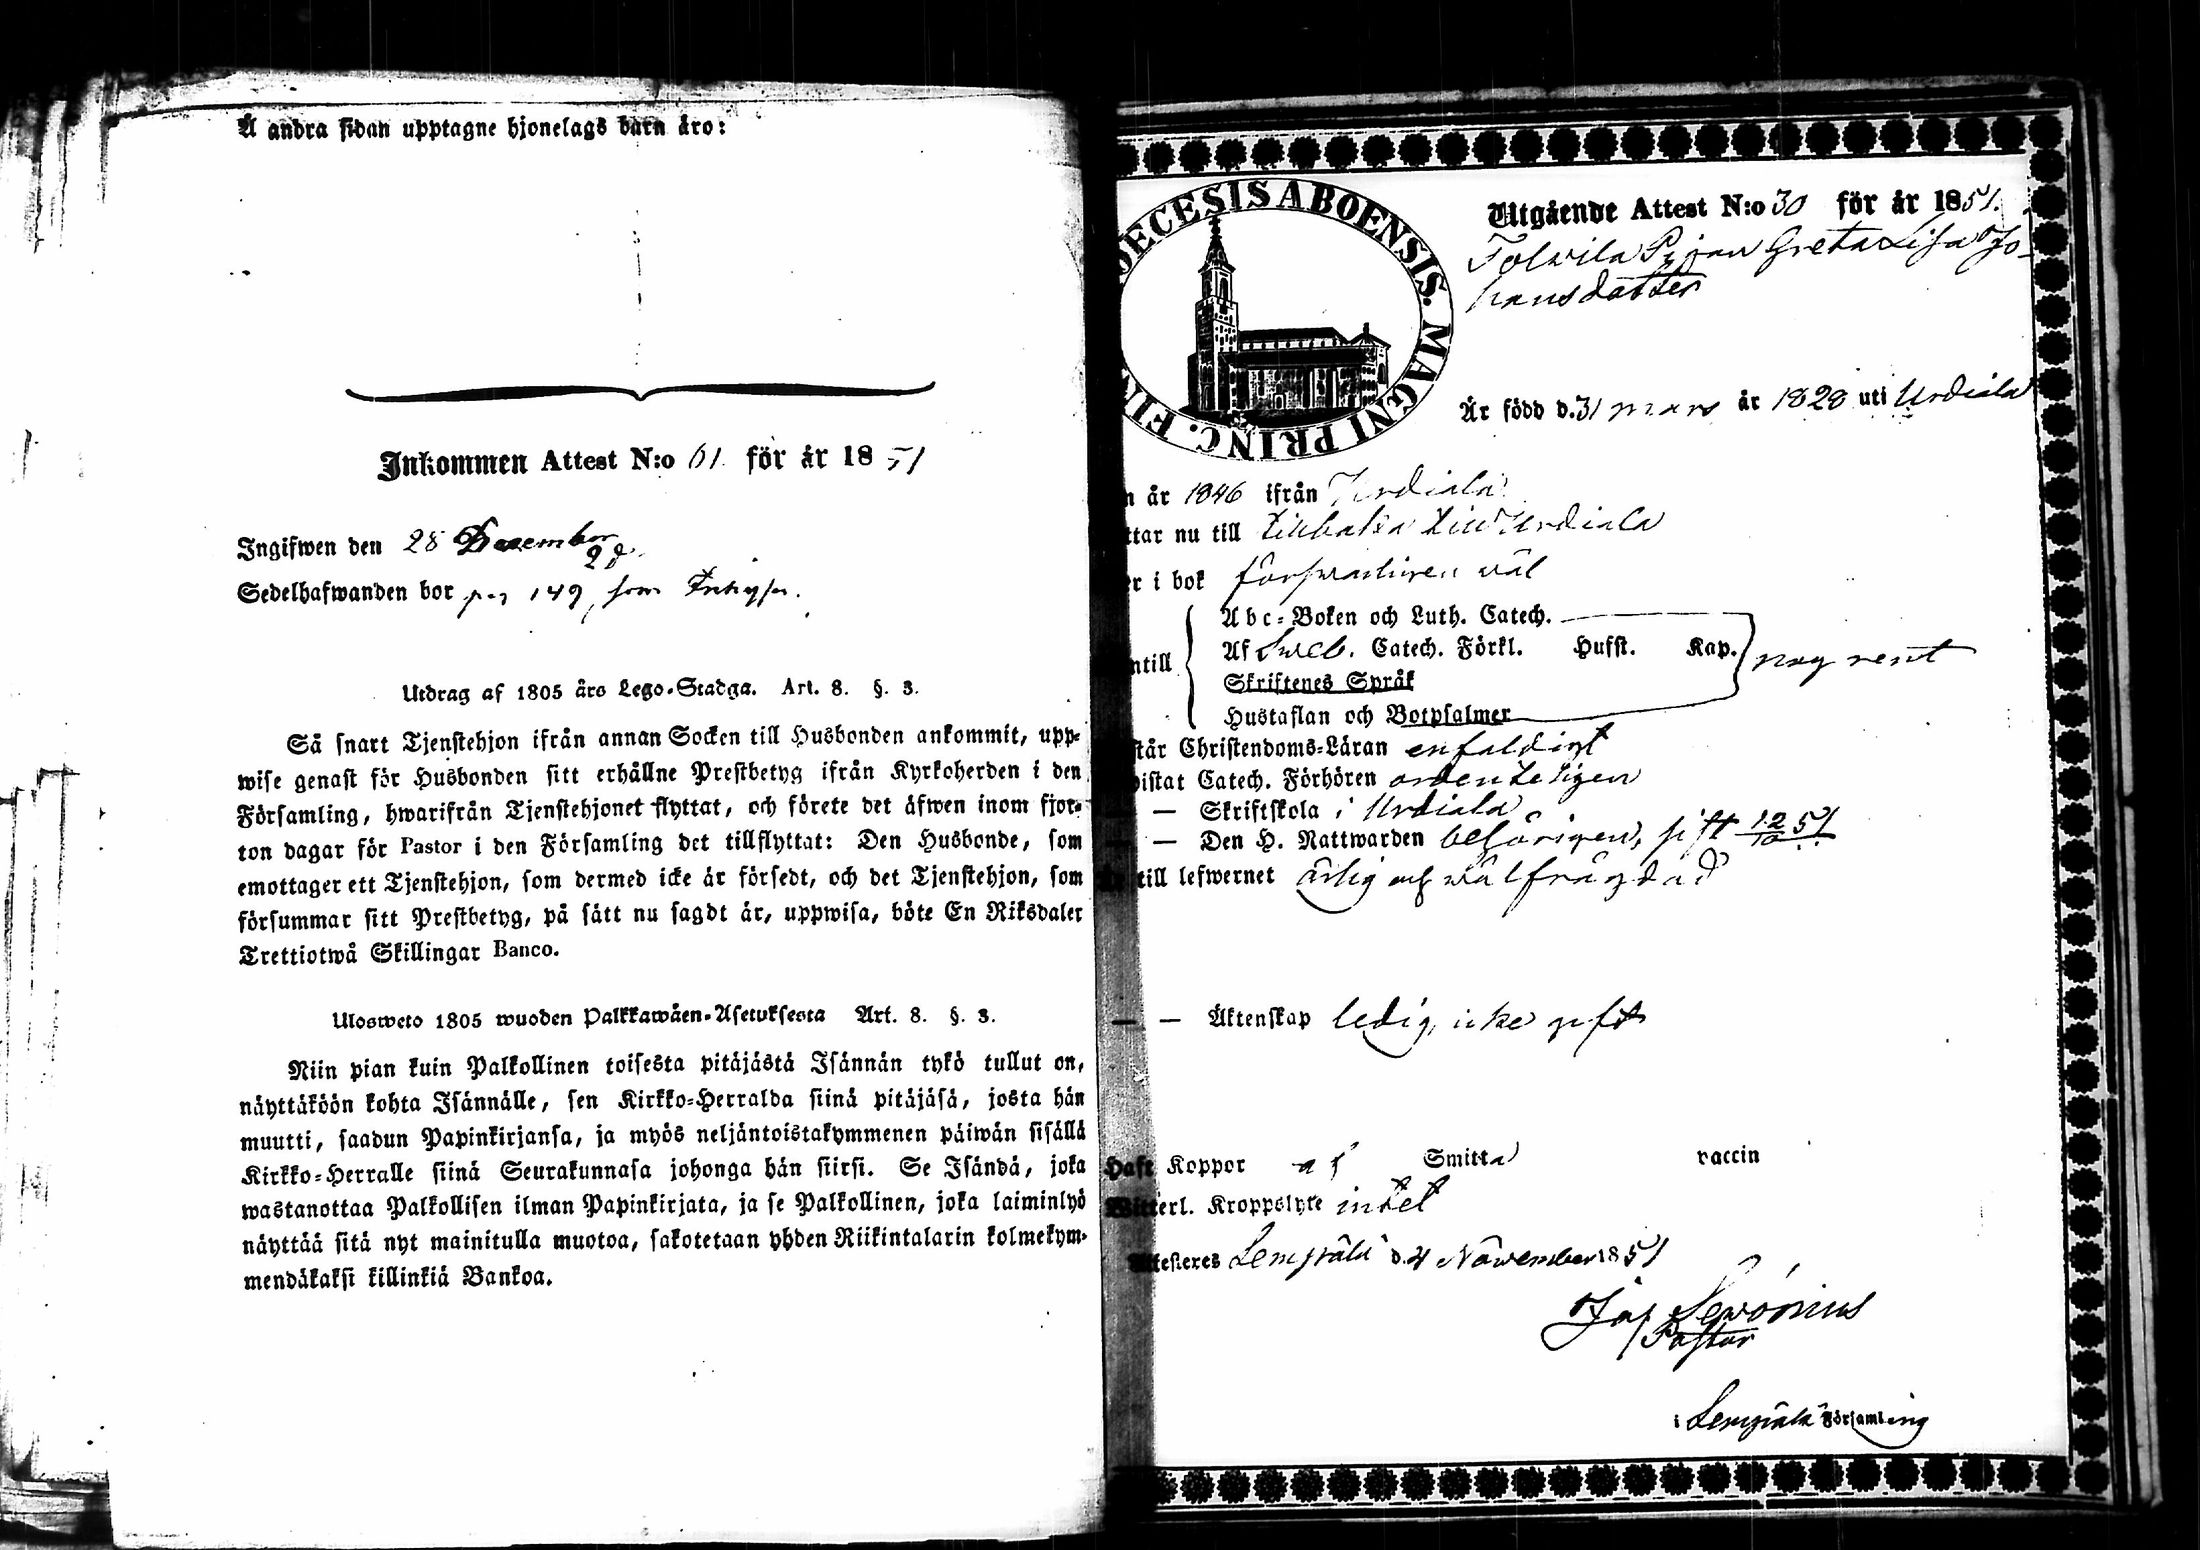 Å andra sidan upptagne hjonelags barn äro:
Inkommen Attest N:o 61. för år 1851
Ingifwen den 28 December
Sedelhafwanden bor pag 149, som
Utdrag af 1805 års Lego-Stadga. Art. 8. §. 3.
Så snart Tjenstehjon ifrån annan Socken till Husbonden ankommit, upp-
wise genast för Husbonden sitt erhållne Prestbetyg ifrån Kyrkoherden i den
Församling, hwarifrån Tjenstehjonet flyttat, och förete det äfwen inom fjor-
ton dagar för Pastor i den Församling det tillflyttat: Den Husbonde, som
emottager ett Tjenstehjon, som dermed icke är försedt, och det Tjenstehjon, som
försummar sitt Prestbetyg, på sätt nu sagdt är, uppwisa, böte En Riksdaler
Trettiotwå Skillingar Banco.
Ulosweto 1805 wuoden Palkkawäen-Asetuksesta Art. 8. §. 3.
Niin pian kuin Palkollinen toisesta pitäjästä Isännän tykö tullut on,
näyttäköön kohta Isännälle, sen Kirkko-Herralda siinä pitäjäsä, josta hän
muutti, saadun Papinkirjansa, ja myös neljäntoistakymmenen päiwän sisällä
Kirkko-Herralle siinä Seurakunnasa johonga hän siirsi. Se Isändä, joka
wastanottaa Palkollisen ilman Papinkirjata, ja se Palkollinen, joka laiminlyö
näyttää sitä nyt mainitulla muotoa, sakotetaan yhden Riikintalarin kolmekym-
mendäkaksi killinkiä Bankoa.
DECESIS ABOENSIS. MAGNI PRINC. FIN
Utgående Attest N:o 30 för år 1851.
Tolwila Pigan Greta Lisa Jo-
hansdotter
Är född d. 31 mars år 1828 uti Urdiala
n år 1846 ifrån Urdiala
ttar nu till tillbaka till Urdiala
er i bok förswarligen wäl
Abc-Boken och Luth. Catech.
Af Sweb. Catech. Förkl. Husst. Kap.
ntill
nog rent
Skriftenes Språk
Hustaflan och Botpsalmer
står Christendoms-Läran enfaldigt
bistat Catech. Förhören ordenteligen
— Skriftskola i Urdiala
— Den H. Nattwarden behörigen, sist 12/10 51
till lefwernet ärlig och wälfrägdad
— — Äktenskap ledig, icke gift
Haft Koppor af Smitta vaccin
Witterl. Kroppslyte intet
Attesteres Lempälä d. 4 November 1851
Pastor
i Lempälä Församling